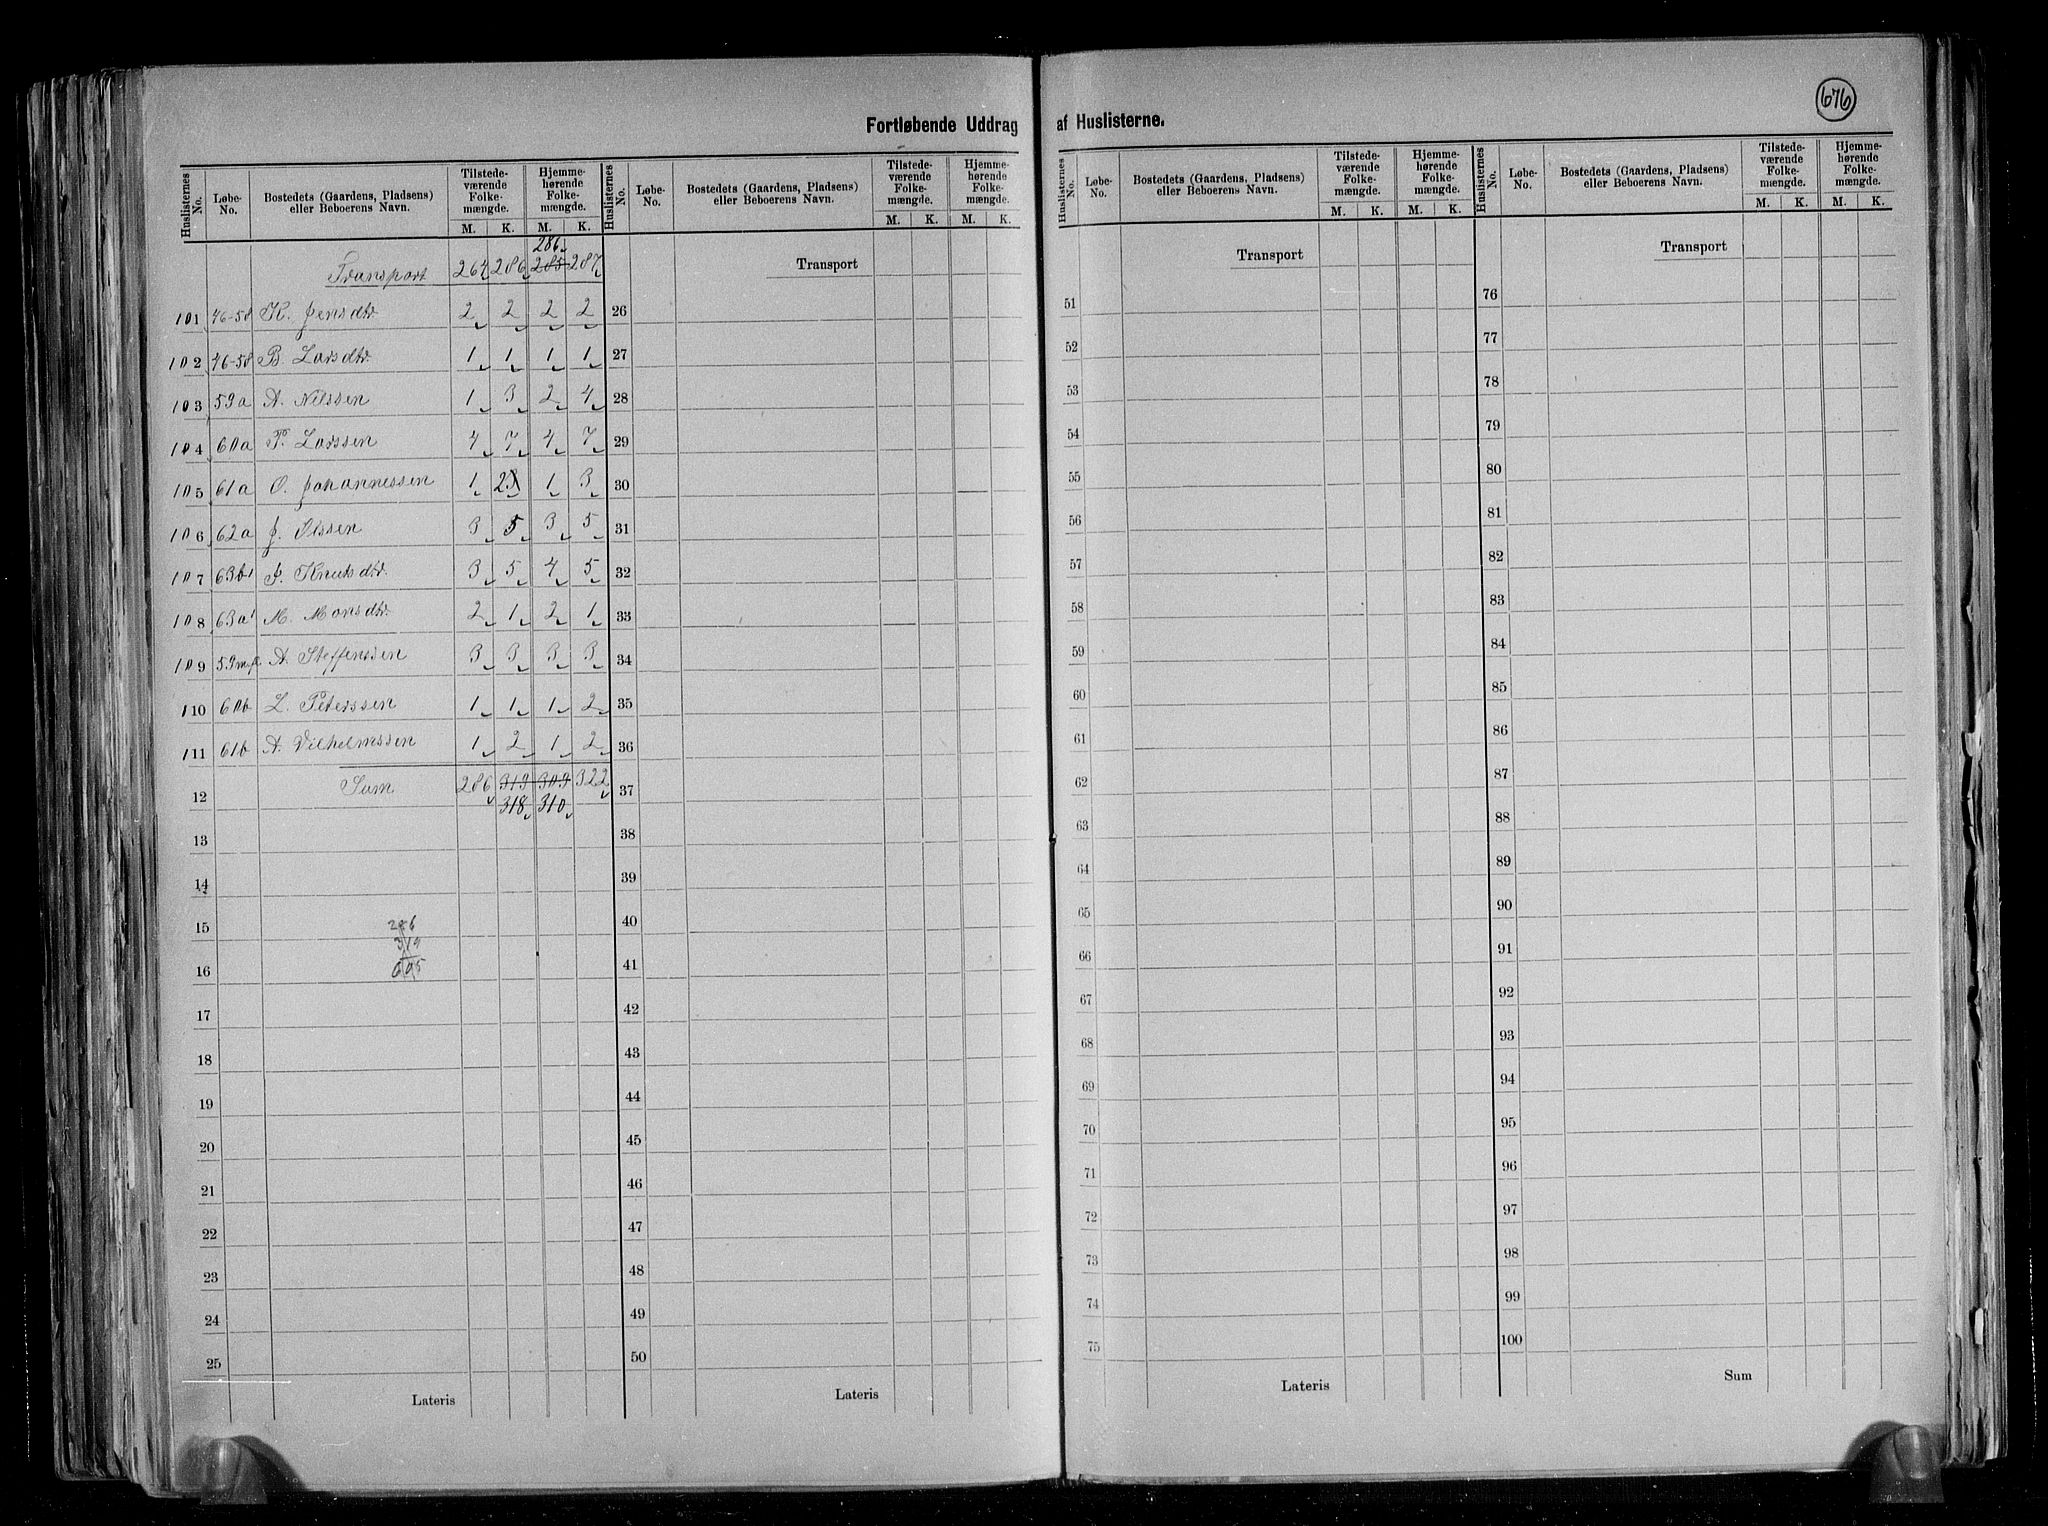 676
Fortløbende Uddrag af Huslisterne.
Huslisternes No. Løbe-No. Bostedets (Gaardens, Pladsens) eller Beboerens Navn. Tilstedeværende Folkemængde. M. K. Hjemmehørende Folkemængde. M. K.
286
Transport 264 286 285 287
101 46-58 K. Jensdtr. 2 2 2 2
102 46-58 B. Larsdtr. 1 1 1 1
103 59a A. Nilssen 1 3 2 4
104 60a P. Larssen 4 7 4 7
105 61a O. Johannessen 1 23 1 3
106 62a J. Olssen 3 5 3 5
107 63b1 J. Knutsdtr. 3 5 4 5
108 63a1 M. Monsdtr. 2 1 2 1
109 59 A. Steffenssen 3 3 3 3
110 60b L. Peterssen 1 1 1 2
111 61b A. Vilhelmssen 1 2 1 2
12 Sum 286 319 309 322
318 310
13
14
15 286
319
16 605
17
18
19
20
21
22
23
24
25
Lateris
Huslisternes No. Løbe-No. Bostedets (Gaardens, Pladsens) eller Beboerens Navn. Tilstedeværende Folkemængde. M. K. Hjemmehørende Folkemængde. M. K.
Transport
26
27
28
29
30
31
32
33
34
35
36
37
38
39
40
41
42
43
44
45
46
47
48
49
50
Lateris
Huslisternes No. Løbe-No. Bostedets (Gaardens, Pladsens) eller Beboerens Navn. Tilstedeværende Folkemængde. M. K. Hjemmehørende Folkemængde. M. K.
Transport
51
52
53
54
55
56
57
58
59
60
61
62
63
64
65
66
67
68
69
70
71
72
73
74
75
Lateris
Huslisternes No. Løbe-No. Bostedets (Gaardens, Pladsens) eller Beboerens Navn. Tilstedeværende Folkemængde. M. K. Hjemmehørende Folkemængde. M. K.
Transport
76
77
78
79
80
81
82
83
84
85
86
87
88
89
90
91
92
93
94
95
96
97
98
99
100
Sum